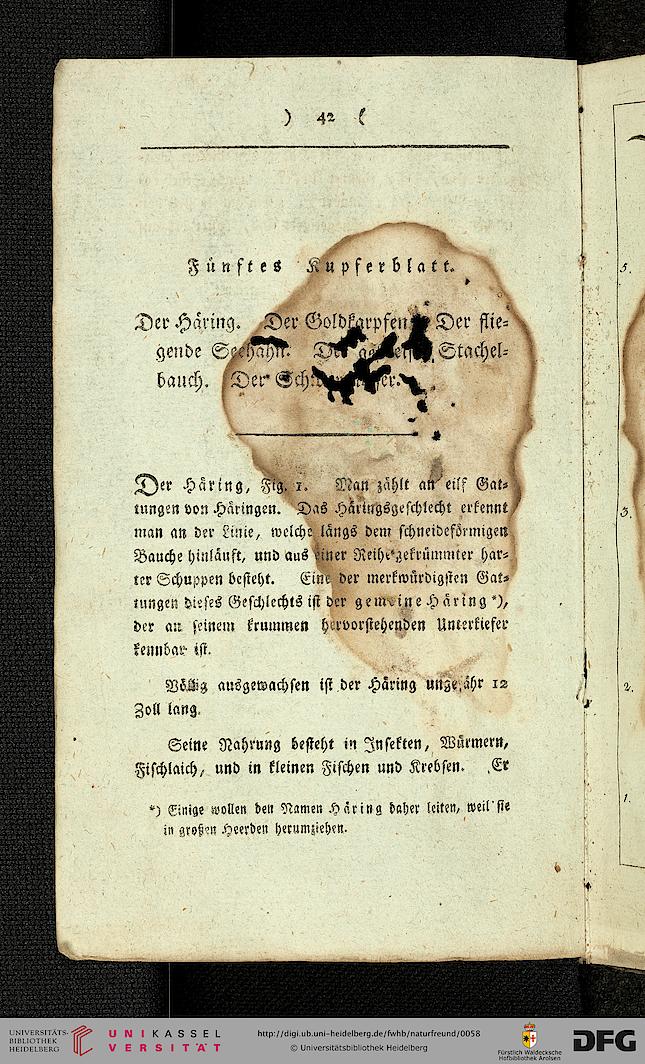 ) 42 (
Fünftes Kupferblatt.
Der Häring. Der Goldkarpfen. Der flie-
gende Seehahn. Der Stachel-
bauch. Der
Der Häring, Fig. 1. Man zählt an eilf Gat-
tungen von Häringen. Das Häringsgeschlecht erkennt
man an der Linie, welche längs dem schneideförmigen
Bauche hinläuft, und aus einer Reihe gekrümmter har-
ter Schuppen besteht. Eine der merkwürdigsten Gat-
tungen dieses Geschlechts ist der gemeine Häring *),
der an seinem krummen hervorstehenden Unterkiefer
kennbar ist.
Völlig ausgewachsen ist der Häring ungefähr 12
Zoll lang.
Seine Nahrung besteht in Insekten, Würmern,
Fischlaich, und in kleinen Fischen und Krebsen. Er
*) Einige wollen den Namen Häring daher leiten, weil sie
in großen Heerden herumziehen.
5.
3.
2.
1.
UNIVERSITÄTS-
BIBLIOTHEK
HEIDELBERG
UNIKASSEL
VERSITÄT
http://digi.ub.uni-heidelberg.de/fwhb/naturfreund/0058
© Universitätsbibliothek Heidelberg
Fürstlich Waldecksche
Hofbibliothek Arolsen
DFG